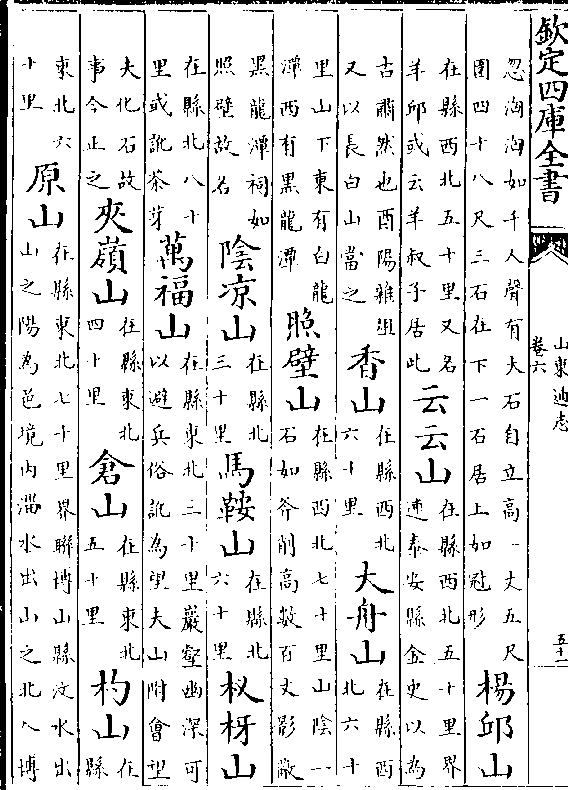 欽定四庫全書
山東通志
卷六
五十一
忽洶洶如千人聲有大石自立高一丈五尺
圍四十八尺三石在下一石居上如冠形
楊邱山
在縣西北五十里又名
羊邱或云羊叔子居此
云云山
在縣西北五十里界
連泰安縣金史以為
古肅然也酉陽雜俎
又以長白山當之
香山
在縣西北
六十里
大舟山
在縣西
北六十
里山下東有白龍
潭西有黑龍潭
照壁山
在縣西北七十里山陰一
石如斧削高數百丈影蔽
黑龍潭祠如
照壁故名
陰凉山
在縣北
三十里
馬鞍山
在縣北
六十里
杈枒山
在縣北八十
里或訛茶芽
萬福山
在縣東北三十里巖壑幽深可
以避兵俗訛為望夫山附會望
夫化石故
事今正之
夾嶺山
在縣東北
四十里
倉山
在縣東北
五十里
杓山
在
縣
東北六
十里
原山
在縣東北七十里界聯博山縣汶水出
山之陽為邑境内淄水出山之北入博